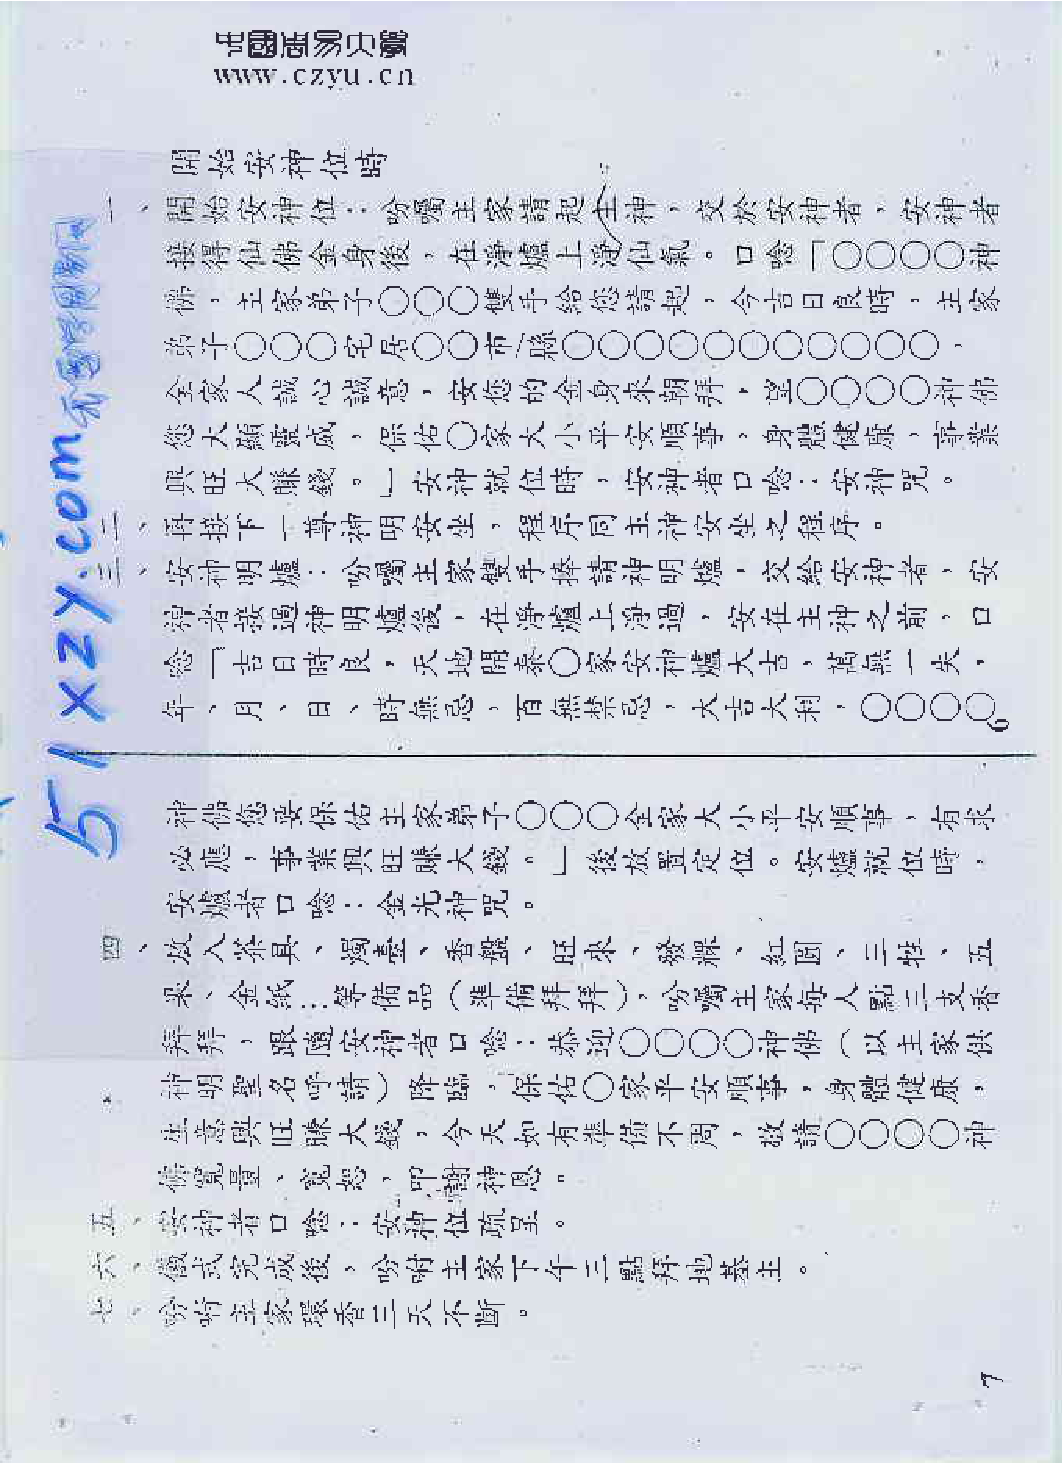 中國周易大學
www.czyu.cn
51xzy.com
開始安神位時
一、開始安神位：吩囑主家請起主神，交於安神者，安神者
接得仙佛金身後，在淨爐上淨仙氣。口唸「○○○○神
佛，主家弟子○○○雙手給您請起，今吉日良時，主家
弟子○○○宅居○○市/縣○○○○○○○○○○○，
全家人誠心誠意，安您的金身來朝拜，望○○○○神佛
您大顯靈威，保佑○家大小平安順事，身體健康，事業
興旺大賺錢。」安神就位時，安神者口唸：安神咒。
二、再接下一尊神明安坐，程序同主神安坐之程序。
三、安神明爐：吩囑主家雙手捧請神明爐，交給安神者，安
神者接過神明爐後，在淨爐上淨過，安在主神之前，口
唸「吉日時良，天地開泰○家安神爐大吉，萬無一失，
年、月、日、時無忌，百無禁忌，大吉大利，○○○○
6
神佛您要保佑主家弟子○○○全家大小平安順事，有求
必應，事業興旺賺大錢。」後放置定位。安爐就位時，
安爐者口唸：金光神咒。
四、放入茶具、燭臺、香盤、旺來、發粿、紅圓、三牲、五
果、金紙…等備品（準備拜拜），吩囑主家每人點三支香
拜拜，跟隨安神者口唸：恭迎○○○○神佛（以主家供
神明聖名呼請）降臨，保佑○家平安順事，身體健康，
生意興旺賺大錢，今天如有準備不周，敬請○○○○神
佛寬量、寬恕，叩謝神恩。
五、安神者口唸：安神位疏呈。
六、儀式完成後，吩咐主家下午三點拜地基主。
七、吩咐主家環香三天不斷。
7